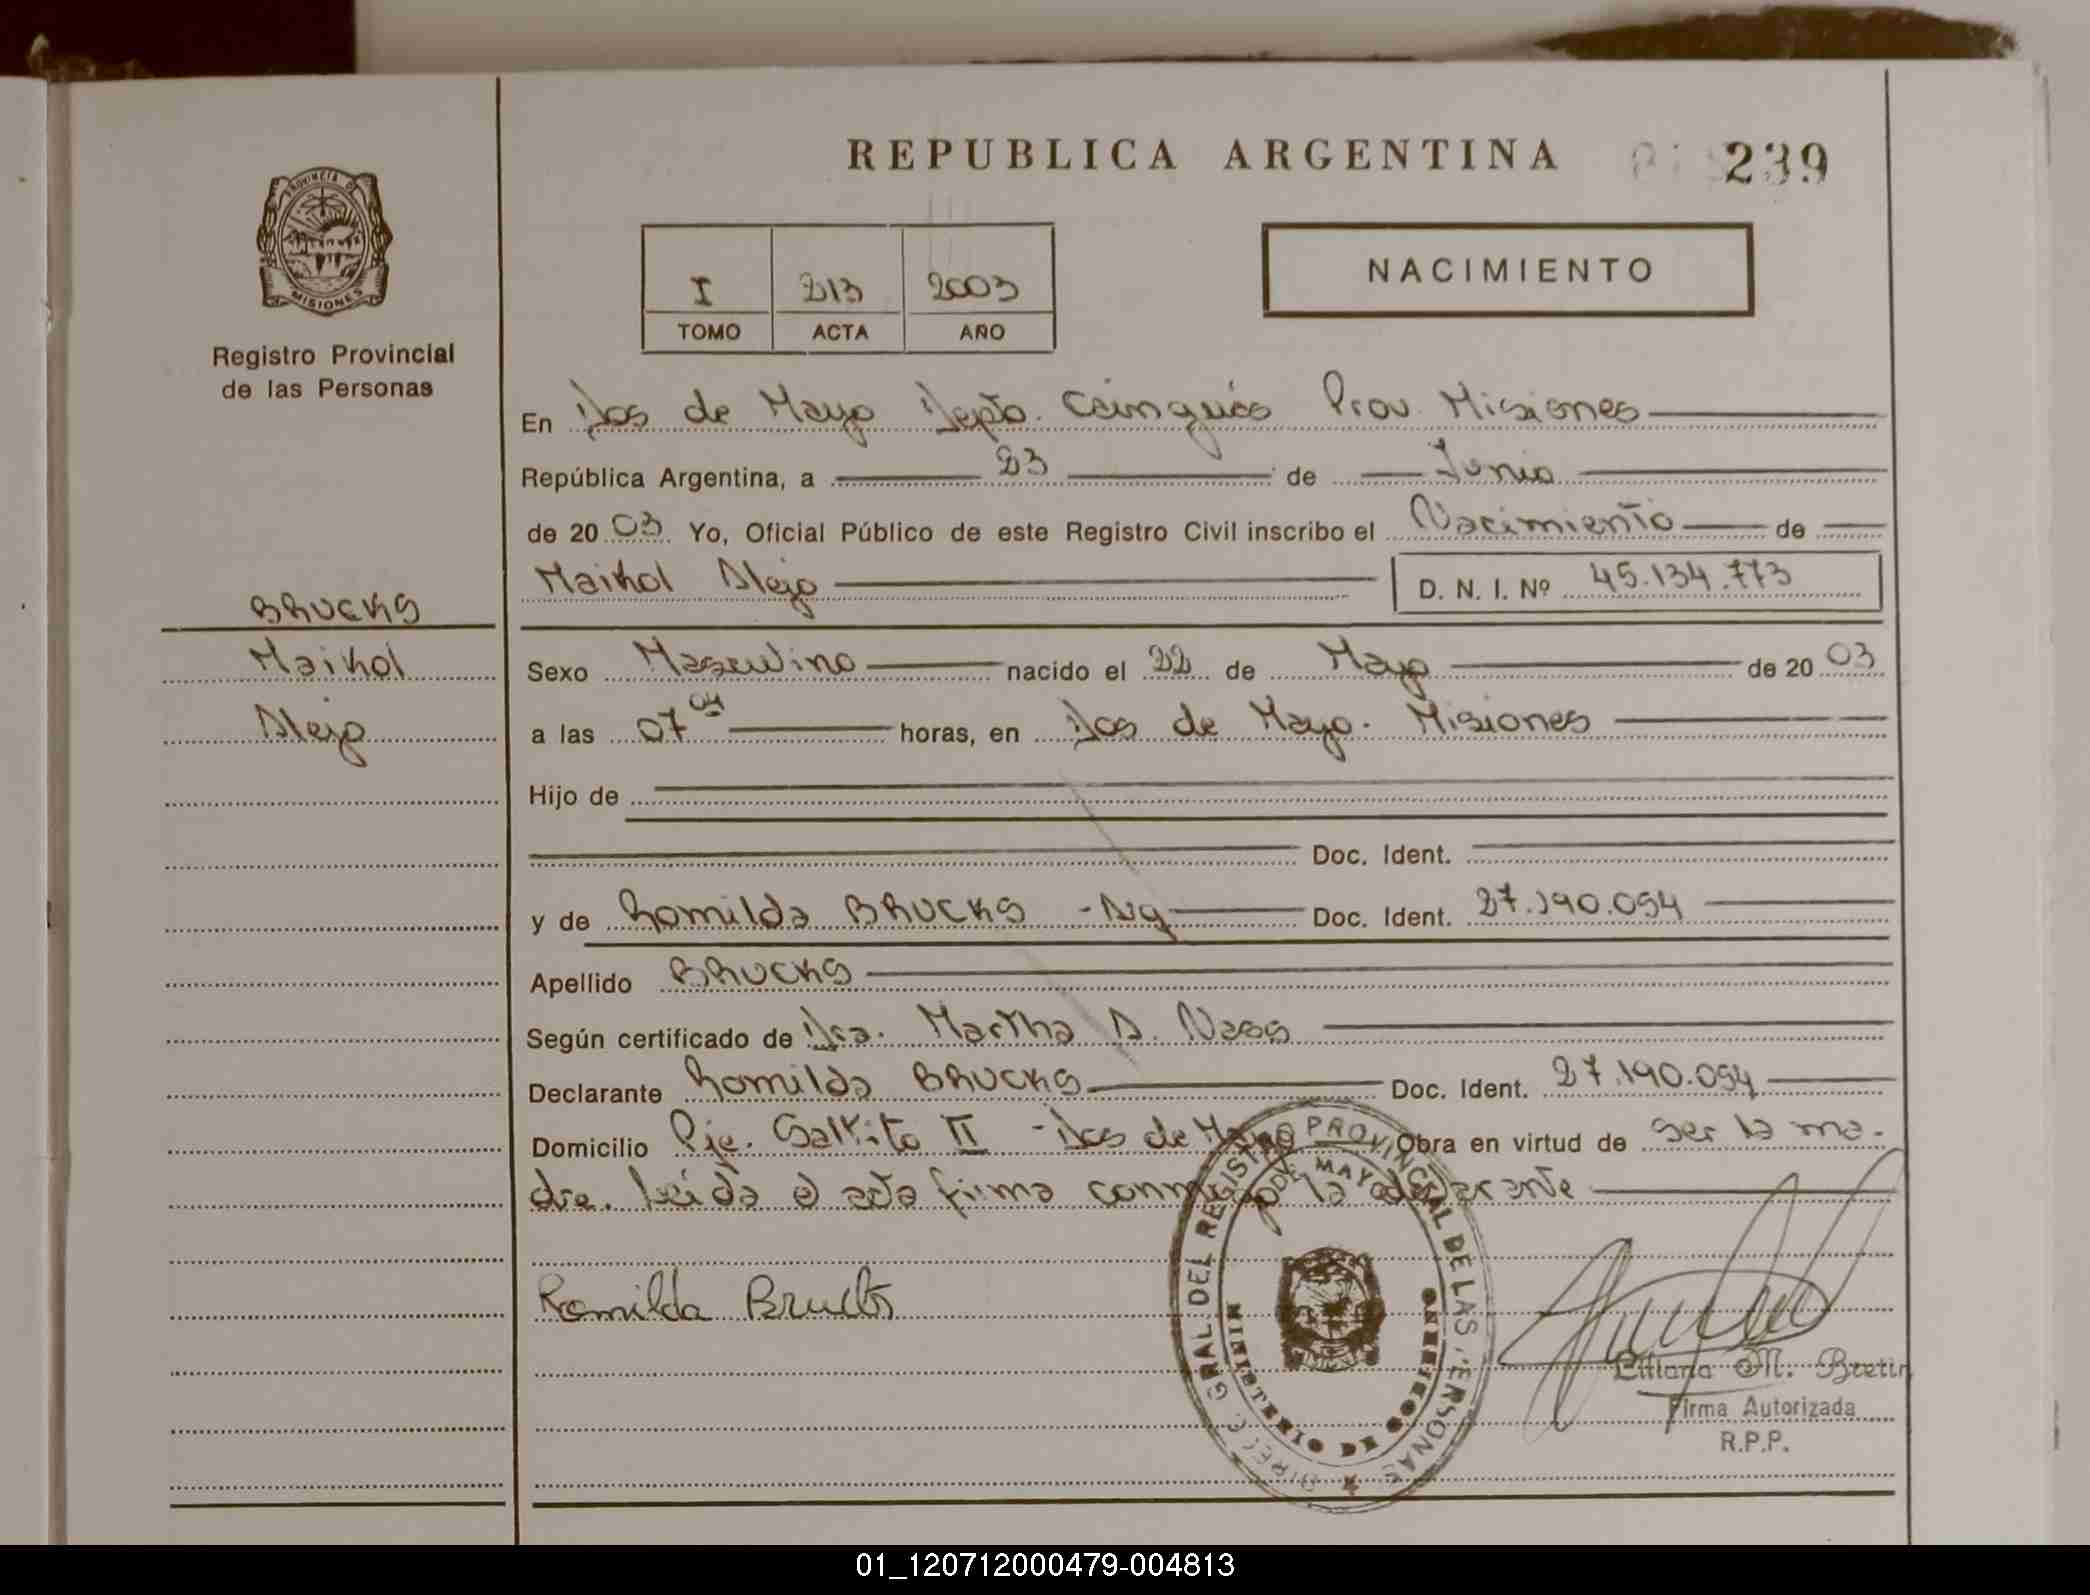 REPUBLICA ARGENTINA
239
PROVINCIA DE
MISIONES
Registro Provincial
de las Personas
I 213 2003
TOMO ACTA AÑO
NACIMIENTO
En Dos de Mayo Depto. Cainguás Prov. Misiones
República Argentina, a 23 de Junio
de 2003. Yo, Oficial Público de este Registro Civil inscribo el Nacimiento de
Maikol Alejo D. N. I. Nº 45.134.773
BRUCKS
Maikol
Alejo
Sexo Masculino nacido el 22 de Mayo de 2003
a las 07 04 horas, en Dos de Mayo. Misiones
Hijo de
Doc. Ident.
y de Romilda BRUCKS - Arg Doc. Ident. 27.190.054
Apellido BRUCKS
Según certificado de Dra. Martha A. Nass
Declarante Romilda BRUCKS Doc. Ident. 27.190.054
Domicilio Pje. Saltito II - Dos de Mayo Obra en virtud de ser la ma-
dre. Leída el acta firma conmigo la declarante
Romilda Brucks
DIRECC. GRAL. DEL REGISTRO PROVINCIAL DE LAS PERSONAS
DOS DE MAYO
MINISTERIO DE GOBIERNO
Liliana M. Bretin
Firma Autorizada
R.P.P.
01_120712000479-004813